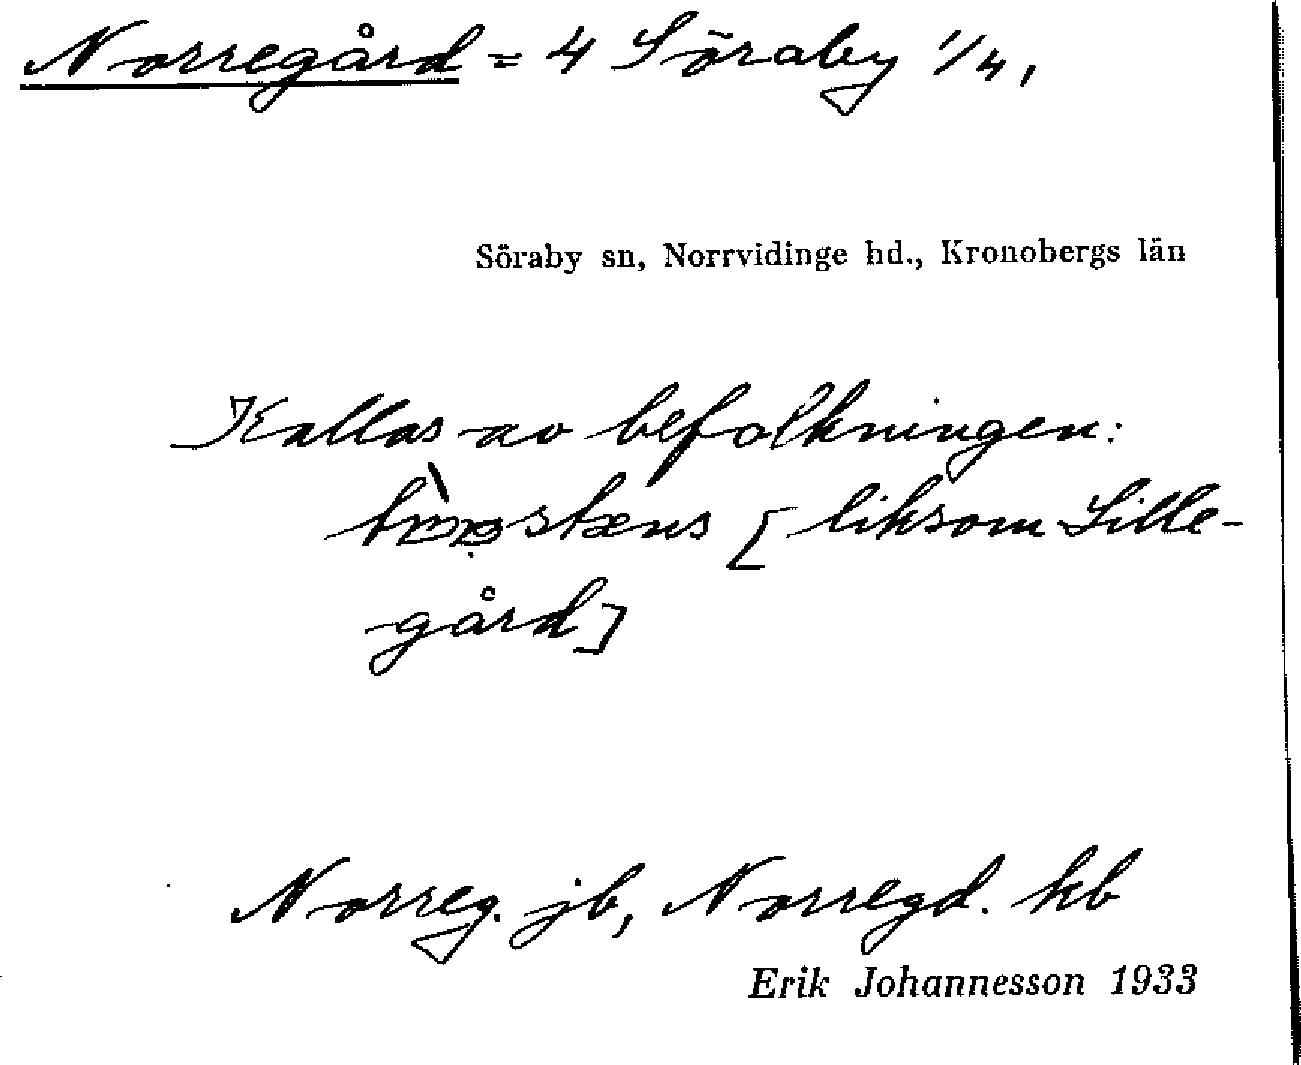 Norregård = 4 Söraby 1/4,
Söraby sn, Norrvidinge hd., Kronobergs län
Kallas av befolkningen:
[liksom Lille-
gård]
Norreg. jb, Norregd. kb
Erik Johannesson 1933